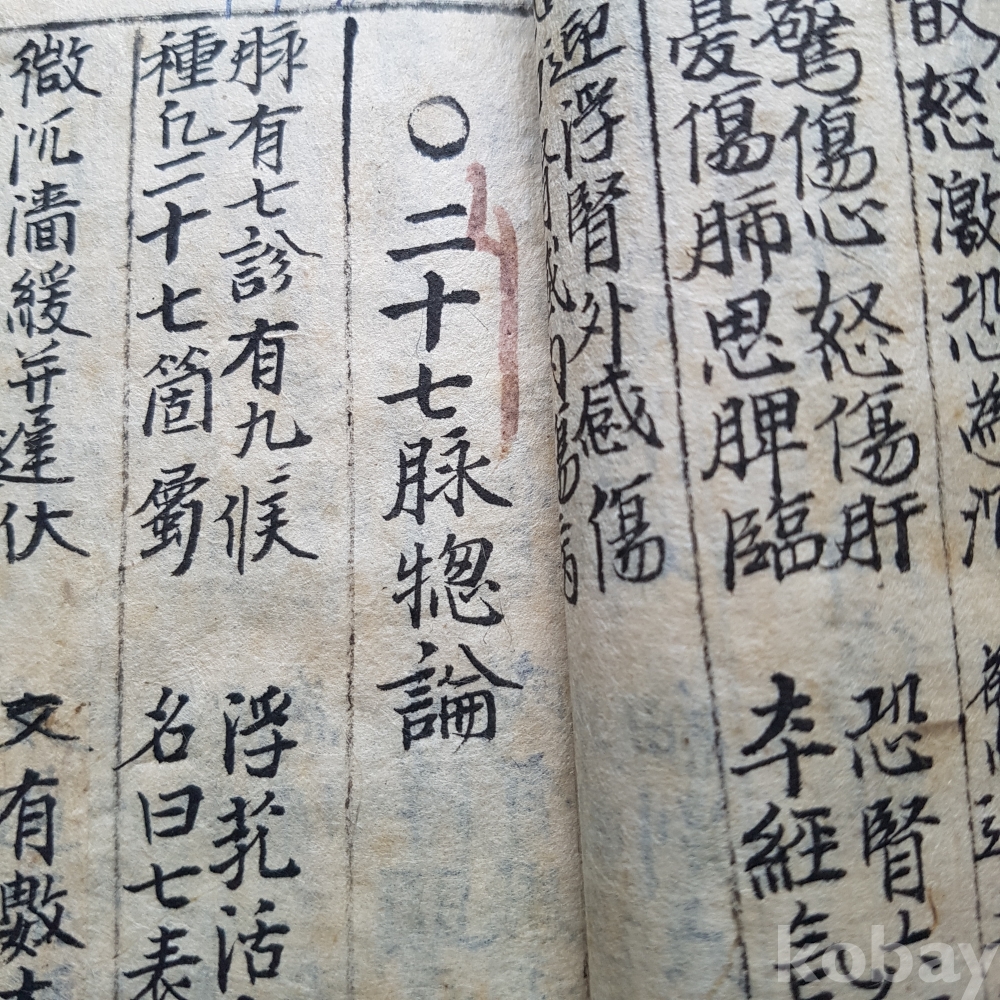 怒激恐為
驚傷心怒傷肝 恐腎
憂傷肺思脾臨 夲經
迎浮腎外感傷
○二十七脉揔論
脉有七診有九候 浮芤活
種凡二十七箇蜀 名曰七表
微沉濇緩并遲伏 文有數
kobay